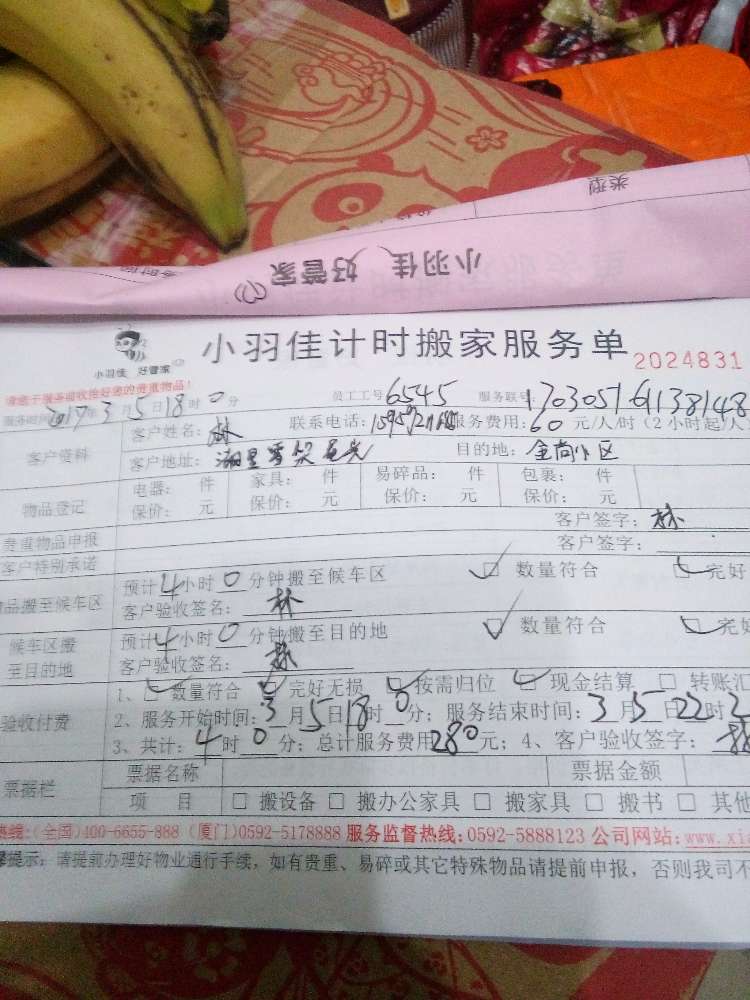 类型
小羽佳 好管家
小羽佳计时搬家服务单 2024831
小羽佳 好管家
请您于服务前收拾好您的贵重物品！
服务时间：2017年3月5日18时0分 员工工号6545 服务联号：
客户资料 客户姓名：林 联系电话： 服务费用：60元/人/时（2小时起/人
客户地址： 目的地：金尚小区
物品登记 电器： 件 家具： 件 易碎品： 件 包裹： 件
保价： 元 保价： 元 保价： 元 保价： 元
贵重物品申报 客户签字：林
客户特别承诺 客户签字：
品搬至候车区 预计4小时0分钟搬至候车区 数量符合 完好
客户验收签名：林
候车区搬至目的地 预计4小时0分钟搬至目的地 数量符合 完好
客户验收签名：林
验收付费 1、数量符合 完好无损 按需归位 现金结算 转账汇
2、服务开始时间：3月5日18时0分；服务结束时间：3月5日22时
3、共计：4时0分；总计服务费用280元；4、客户验收签字：林
票据栏 票据名称 票据金额
项 目 搬设备 搬办公家具 搬家具 搬书 其他
热线：(全国)400-6655-888 (厦门)0592-5178888 服务监督热线：0592-5888123 公司网站：www.xia
馨提示：请提前办理好物业通行手续，如有贵重、易碎或其它特殊物品请提前申报，否则我司不